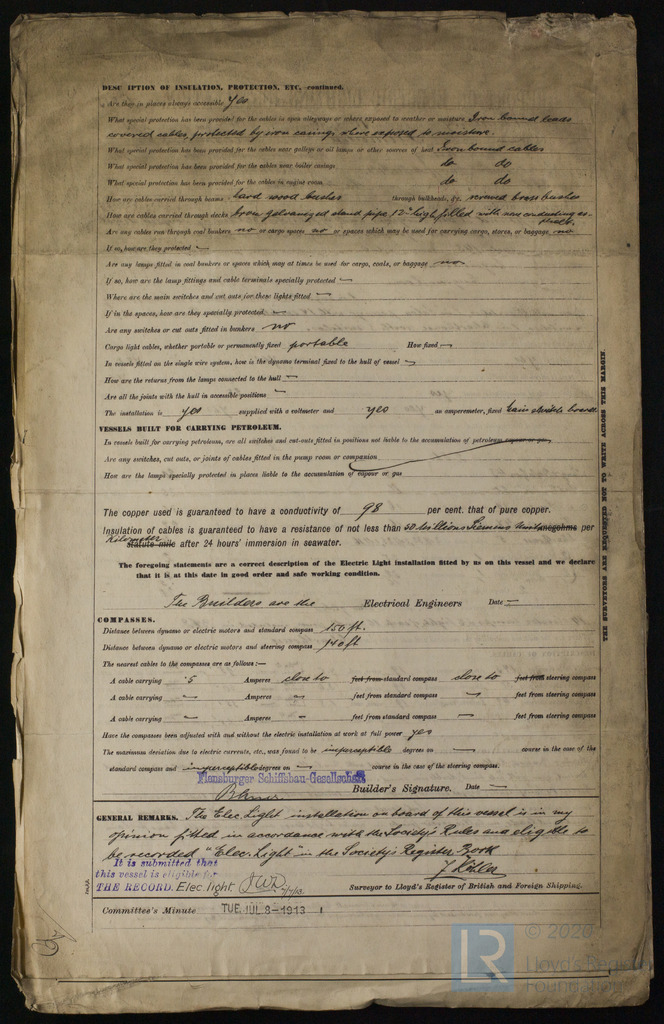 DESC IPTION OF INSULATION, PROTECTION, ETC.—continued.
Are they in places always accessible yes
What special protection has been provided for the cables in open alleyways or where exposed to weather or moisture Iron bound leads
covered cables, protected by iron casings where exposed to moisture.
What special protection has been provided for the cables near galleys or oil lamps or other sources of heat Iron bound cables
What special protection has been provided for the cables near boiler casings do do
What special protection has been provided for the cables in engine room do do
How are cables carried through beams hard wood bushes through bulkheads, &c. screwed brass bushes
How are cables carried through decks Iron galvanized stand pipe 12" high filled with non conducting as-
Are any cables run through coal bunkers no or cargo spaces no or spaces which may be used for carrying cargo, stores, or baggage no
If so, how are they protected —
Are any lamps fitted in coal bunkers or spaces which may at times be used for cargo, coals, or baggage no
If so, how are the lamp fittings and cable terminals specially protected —
Where are the main switches and cut outs for these lights fitted —
If in the spaces, how are they specially protected —
Are any switches or cut outs fitted in bunkers no
Cargo light cables, whether portable or permanently fixed portable How fixed —
In vessels fitted on the single wire system, how is the dynamo terminal fixed to the hull of vessel —
How are the returns from the lamps connected to the hull —
Are all the joints with the hull in accessible positions —
The installation is yes supplied with a voltmeter and yes an amperemeter, fixed main switch board
VESSELS BUILT FOR CARRYING PETROLEUM.
In vessels built for carrying petroleum, are all switches and cut-outs fitted in positions not liable to the accumulation of petroleum vapour or gas
Are any switches, cut outs, or joints of cables fitted in the pump room or companion
How are the lamps specially protected in places liable to the accumulation of vapour or gas
The copper used is guaranteed to have a conductivity of 98 per cent. that of pure copper.
Insulation of cables is guaranteed to have a resistance of not less than 50 Millions Siemens Unit megohms per
Kilometer
statute mile after 24 hours' immersion in seawater.
The foregoing statements are a correct description of the Electric Light installation fitted by us on this vessel and we declare
that it is at this date in good order and safe working condition.
The Builders are the Electrical Engineers Date —
COMPASSES.
Distance between dynamo or electric motors and standard compass 150 ft.
Distance between dynamo or electric motors and steering compass 140 ft
The nearest cables to the compasses are as follows:—
A cable carrying 5 Amperes close to feet from standard compass close to feet from steering compass
A cable carrying — Amperes — feet from standard compass — feet from steering compass
A cable carrying — Amperes — feet from standard compass — feet from steering compass
Have the compasses been adjusted with and without the electric installation at work at full power yes
The maximum deviation due to electric currents, etc., was found to be imperceptible degrees on — course in the case of the
standard compass and imperceptible degrees on — course in the case of the steering compass.
Flensburger Schiffsbau-Gesellschaft
Builder's Signature. Date —
GENERAL REMARKS. The Elec. Light installation on board of this vessel is in my
opinion fitted in accordance with the Society's Rules and eligible to
be recorded "Elec. Light" in the Society's Register Book
It is submitted that
this vessel is eligible for
THE RECORD. Elec. light JWD 7/7/13.
Surveyor to Lloyd's Register of British and Foreign Shipping.
Committee's Minute TUE. JUL 8-1913
THE SURVEYORS ARE REQUESTED NOT TO WRITE ACROSS THIS MARGIN.
LR © 2020
Lloyd's Register
Foundation